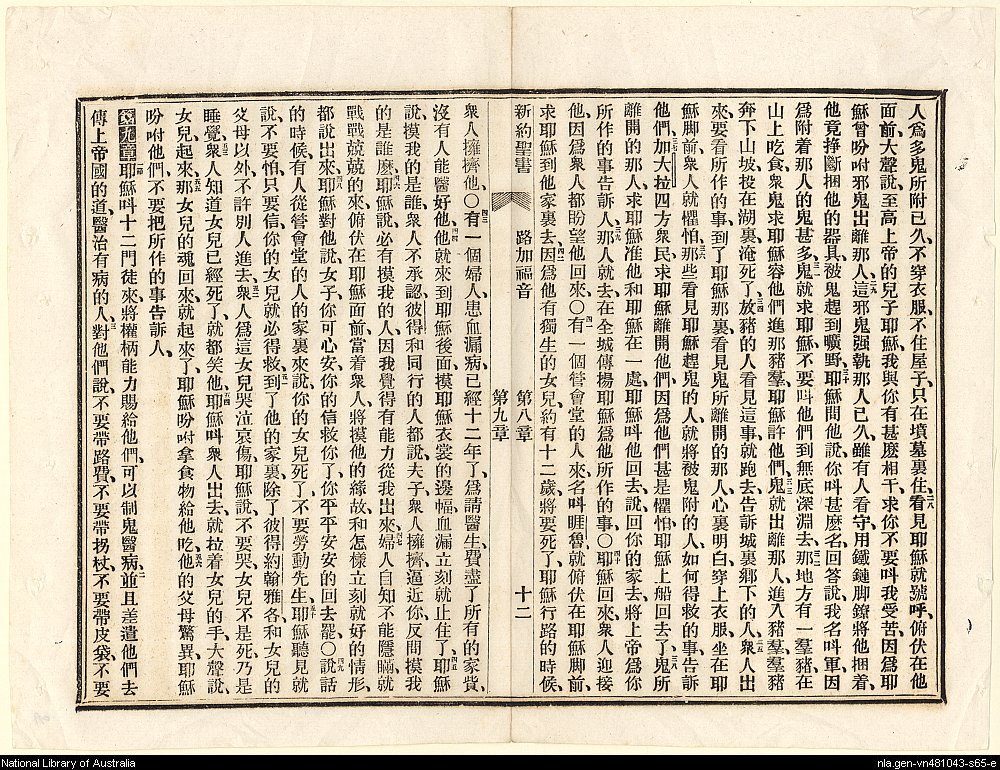 人爲多鬼所附已久、不穿衣服、不住屋子、只在墳墓裏住、二八看見耶穌就號呼、俯伏在他
面前、大聲說、至高上帝的兒子耶穌、我與你有甚麼相干、求你不要呌我受苦、因爲耶
穌曾吩咐邪鬼出離那人、二九這邪鬼强執那人已久、雖有人看守、用鐵鏈脚鐐將他捆着、
他竟掙斷捆他的器具、被鬼趕到曠野、三十耶穌問他說、你呌甚麼名、回答說、我名呌軍、因
爲附着那人的鬼甚多、三一鬼就求耶穌、不要呌他們到無底深淵去、三二那地方有一羣豬、在
山上吃食、衆鬼求耶穌容他們進那豬羣、耶穌許他們、三三鬼就出離那人、進入豬羣、羣豬
奔下山坡、投在湖裏淹死了、三四放豬的人看見這事、就跑去告訴城裏鄉下的人、三五衆人出
來要看所作的事、到了耶穌那裏、看見鬼所離開的那人、心裏明白、穿上衣服、坐在耶
穌脚前、衆人就懼怕、三六那些看見耶穌趕鬼的人、就將被鬼附的人如何得救的事、告訴
他們、三七加大拉四方衆民求耶穌離開他們、因爲他們甚是懼怕、耶穌上船回去了、三八鬼所
離開的那人、求耶穌准他和耶穌在一處、耶穌呌他回去、說、三九回你的家去、將上帝爲你
所作的事告訴人、那人就去在全城傳揚耶穌爲他所作的事、〇四十耶穌回來、衆人迎接
他、因爲衆人都盼望他回來、〇四一有一個管會堂的人來、名呌睚魯、就俯伏在耶穌脚前、
求耶穌到他家裏去、四二因爲他有獨生的女兒、約有十二歲、將要死了、耶穌行路的時候、
新約聖書 路加福音 第八章 第九章 十二
衆人擁擠他、〇四三有一個婦人、患血漏病、已經十二年了、爲請醫生費盡了所有的家貲、
沒有人能醫好他、四四他就來到耶穌後面、摸耶穌衣裳的邊幅、血漏立刻就止住了、四五耶穌
說、摸我的是誰、衆人不承認、彼得和同行的人都說、夫子、衆人擁擠逼近你、反問摸我
的是誰麽、四六耶穌說、必有摸我的人、因我覺得有能力從我出來、四七婦人自知不能隱瞞、就
戰戰兢兢的來俯伏在耶穌面前、當着衆人、將摸他的緣故、和怎樣立刻就好的情形、
都說出來、四八耶穌對他說、女子、你可心安、你的信救你了、你平平安安的回去罷、〇四九說話
的時候、有人從管會堂的人的家裏來、說、你的女兒死了、不要勞動先生、五十耶穌聽見就
說、不要怕、只要信、你的女兒就必得救、五一到了他的家裏、除了彼得約翰雅各、和女兒的
父母以外、不許別人進去、五二衆人爲這女兒哭泣哀傷、耶穌說、不要哭、女兒不是死、乃是
睡覺、五三衆人知道女兒已經死了、就都笑他、五四耶穌呌衆人出去、就拉着女兒的手、大聲說、
女兒起來、五五那女兒的魂回來、就起來了、耶穌吩咐拿食物給他吃、五六他的父母驚異、耶穌
吩咐他們不要把所作的事告訴人、
第九章 一耶穌呌十二門徒來、將權柄能力賜給他們、可以制鬼醫病、二並且差遣他們去
傳上帝國的道、醫治有病的人、三對他們說、不要帶路費、不要帶拐杖、不要帶皮袋、不要
National Library of Australia
nla.gen-vn481043-s65-e